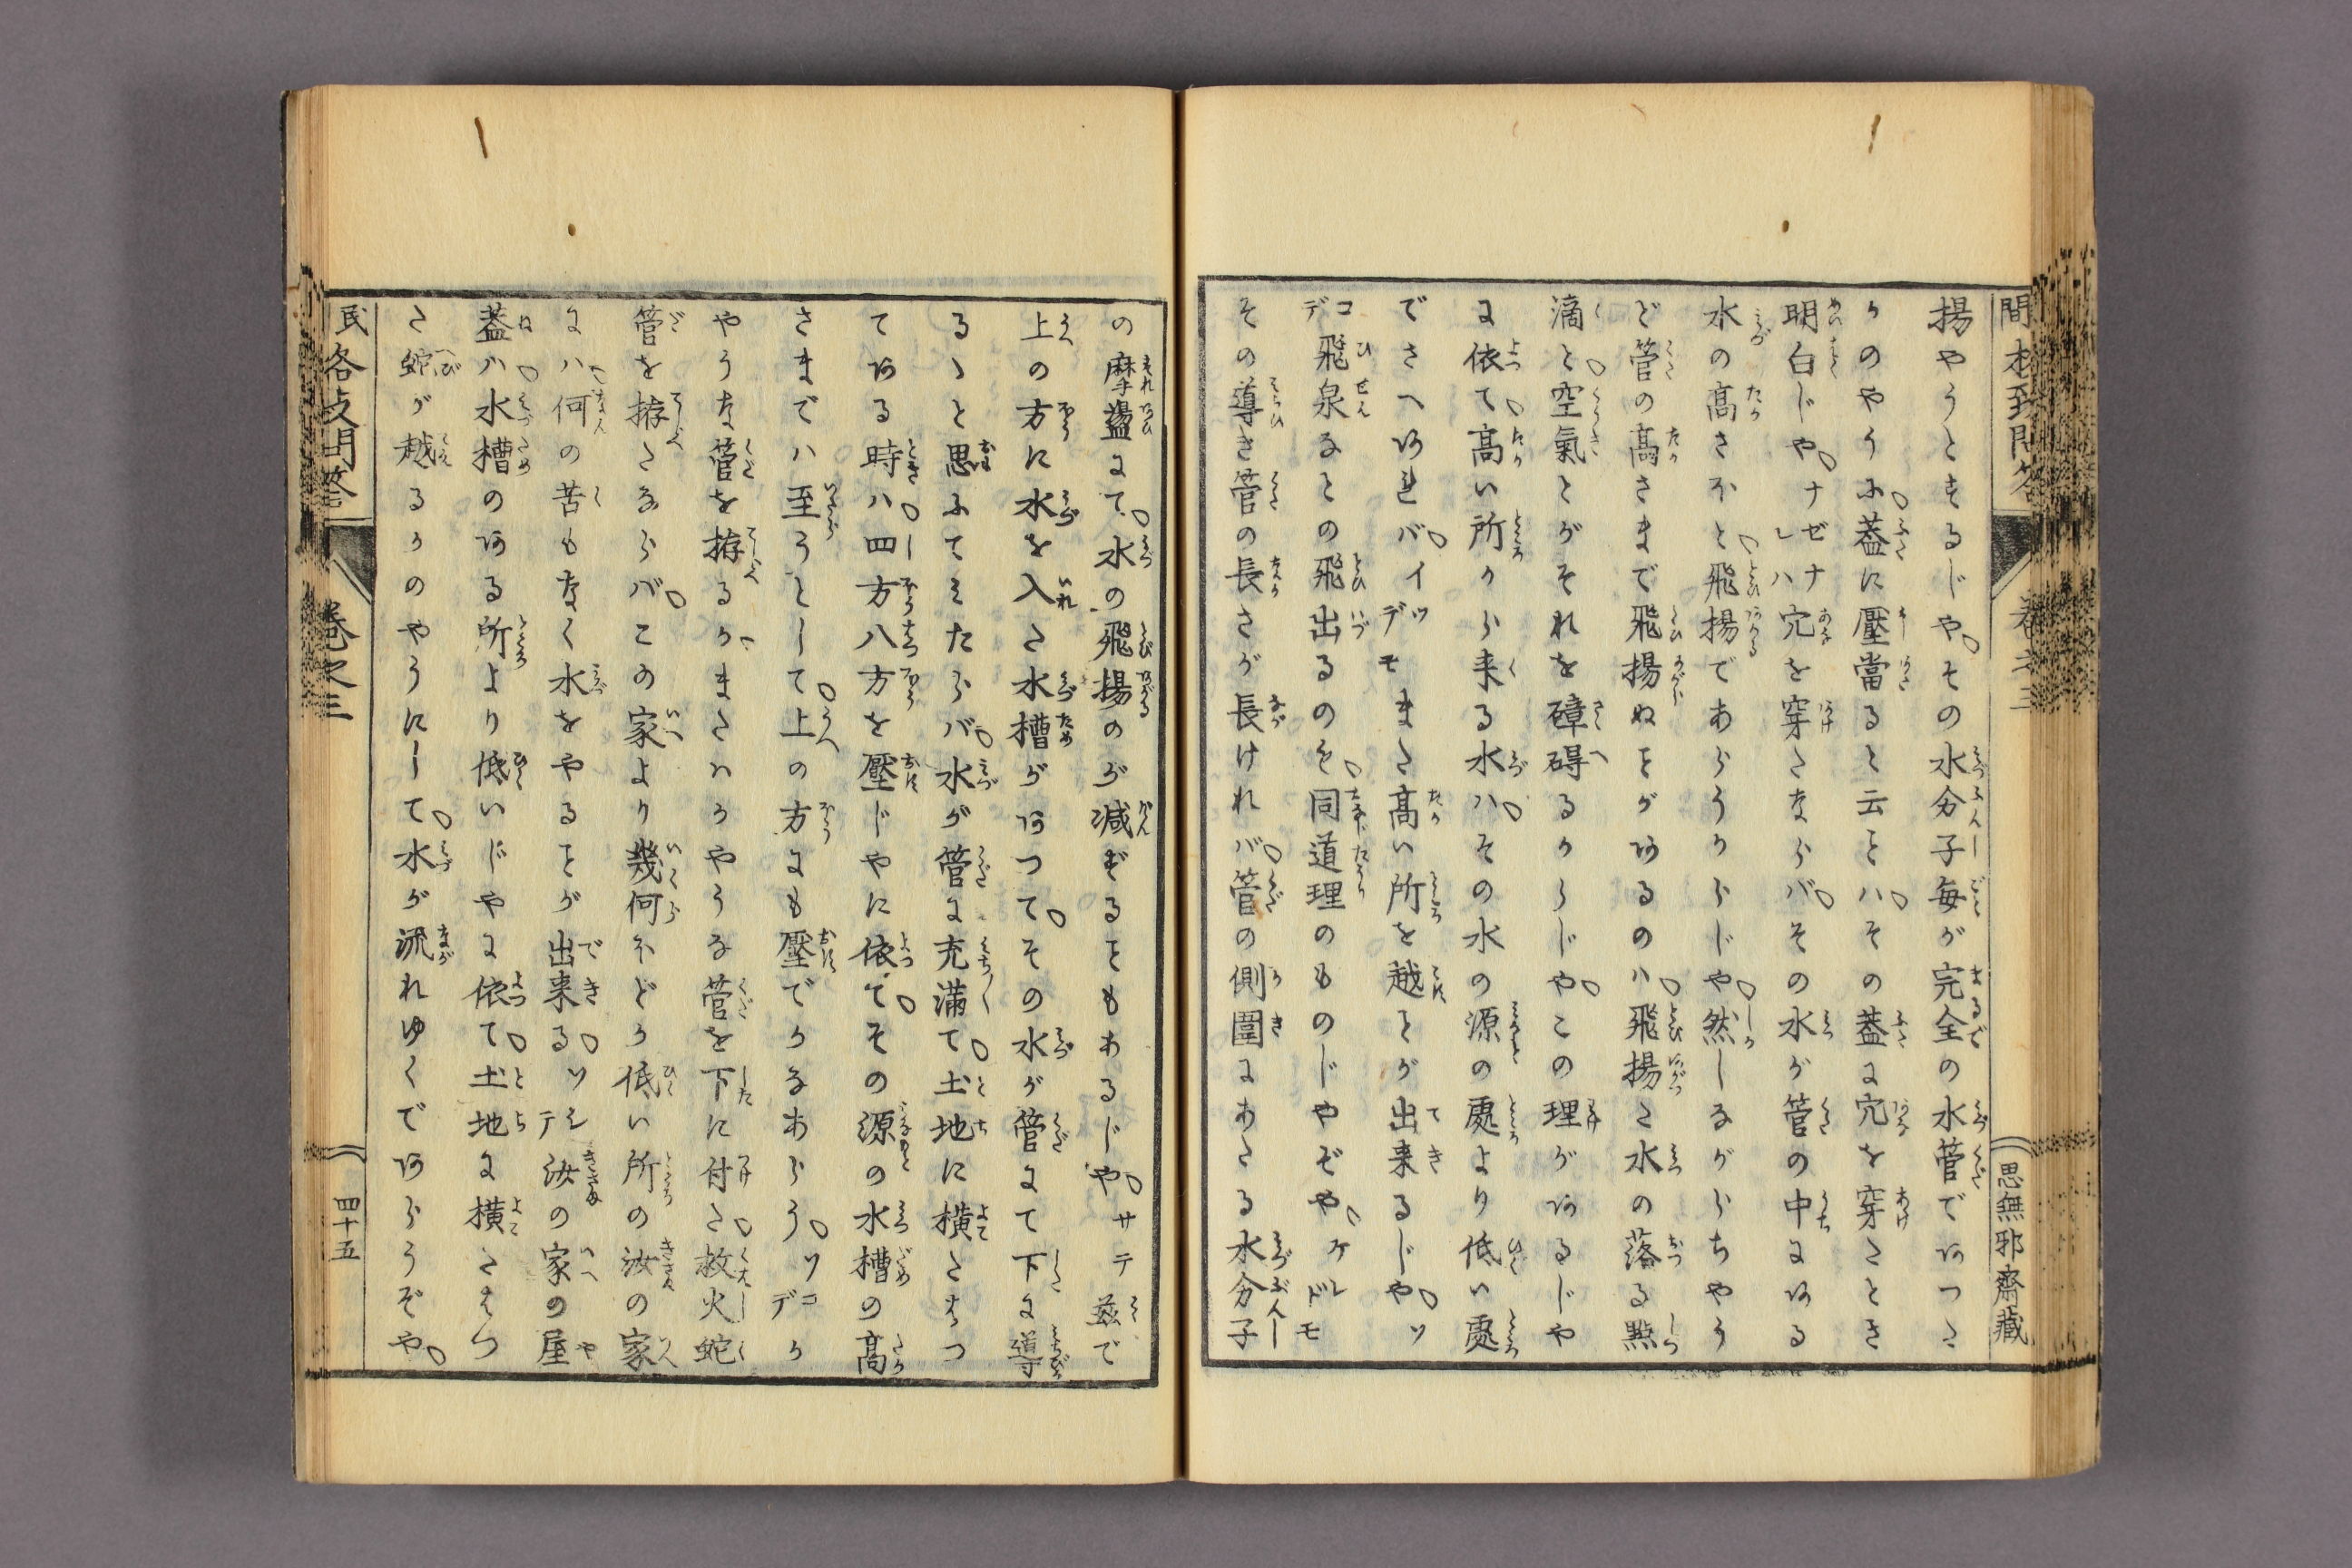 揚やうとするじや。その水分子毎が完全の水管であつた
かのやうに。蓋に壓當ると云とハ。その蓋に穴を穿たとき
明白じや。ナゼナレハ穴を穿たならバ。その水が管の中にある
水の高さほと。飛揚であらうからじや。然しながらちやう
ど管の高さまで飛揚ぬとがあるのハ。飛揚た水の落る點
滴と。空氣とがそれを礙碍るからじや。この理があるじや
に依て。高い所から来る水ハ。その水の源の處より低い處
でさへあれバ。イツデモまた高い所を越とが出来るじや。ソ
コデ飛泉なとの飛出るのも。同道理のものじやぞや。ケレドモ
その導き管の長さが長けれバ。管の側圍にあたる水分子
の摩盪にて。水の飛揚のが減ずるともあるじや。サテ茲で
上の方に水を入た水槽があつて。その水が管にて下に導
るゝと思ふてみたらバ。水が管に充滿て。土地に横たはつ
てある時ハ。四方八方を壓じやに依て。その源の水槽の高
さまでハ至うとして。上の方にも壓でかなあらう。ソコデか
やうな管を拵るか。またハかやうな管を下に付た。救火蛇
管を拵たならバ。この家より幾何ほどか低い所の汝の家
にハ。何の苦もなく水をやるとが出来る。ソシテ汝の家の屋
蓋ハ。水槽のある所より低いじやに依て。土地に横たはつ
た蛇が越るかのやうにして。水が流れゆくであらうぞや。
巻之三
四十五
思無邪齋藏